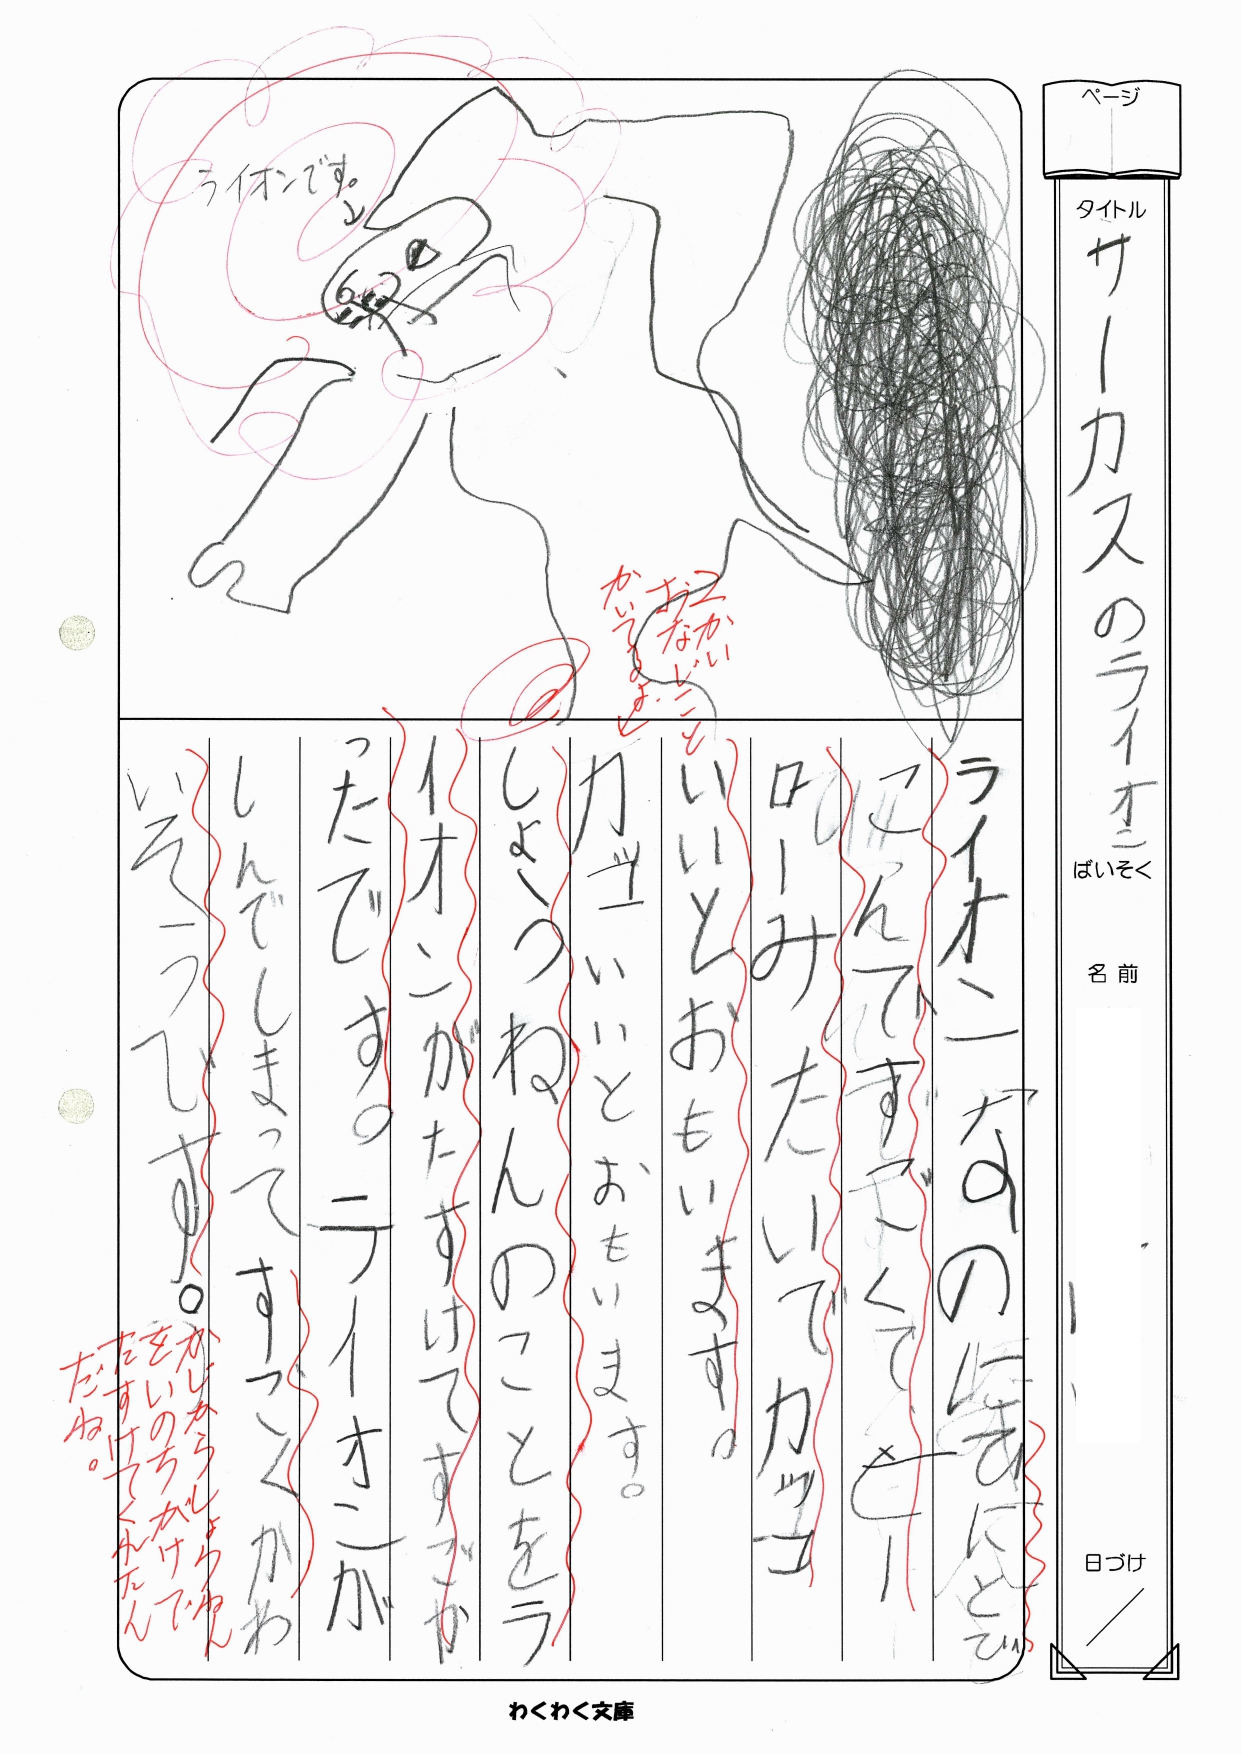 ページ
タイトル
サーカスのライオン
ばいそく
名前
日づけ
ライオンです。
ライオンなのに火にとび
こんですごくてヒー
ローみたいでカッコ
いいとおもいます。
カッコいいとおもいます。
しょうねんのことをラ
イオンがたすけてすごか
ったです。ライオンが
しんでしまってすごくかわ
いそうです。
2かい
おなじこと
かいてるよ。
かじからしょうねん
をいのちがけで
たすけてくれたん
だね。
わくわく文庫